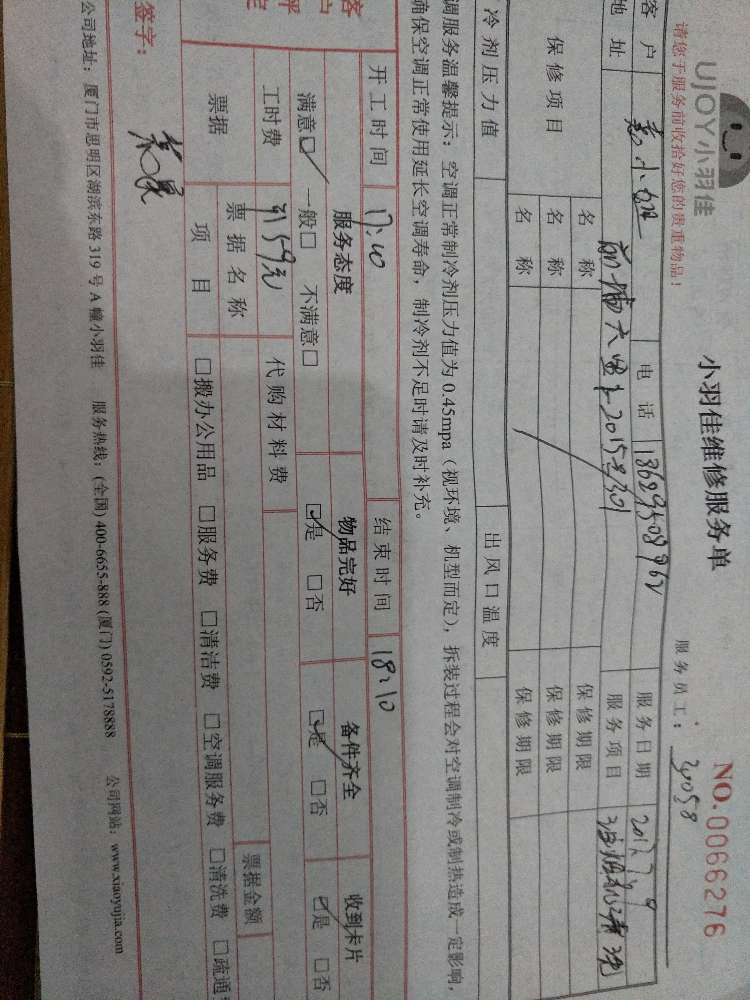 UJOY小羽佳
小羽佳维修服务单
NO.0066276
请您于服务前收拾好您的贵重物品!
服务员工:
客户
电话
服务日期
地址
服务项目
保修项目
名称
保修期限
名称
保修期限
名称
保修期限
冷剂压力值
出风口温度
调服务温馨提示:空调正常制冷剂压力值为0.45mpa(视环境、机型而定),拆装过程会对空调制冷或制热造成一定影响,
确保空调正常使用延长空调寿命,制冷剂不足时请及时补充。
开工时间 17:10
结束时间 18:10
客户
评定
服务态度
物品完好
备件齐全
收到卡片
满意☑ 一般□ 不满意□
☑是 □否
☑是 □否
☑是 □否
工时费
代购材料费
票据
票据名称
票据金额
项目
□搬办公用品 □服务费 □清洁费 □空调服务费 □清洗费 □疏通
签字:
公司地址:厦门市思明区湖滨东路319号A幢小羽佳 服务热线:(全国)400-6655-888(厦门)0592-5178888 公司网站:www.xiaoyujia.com